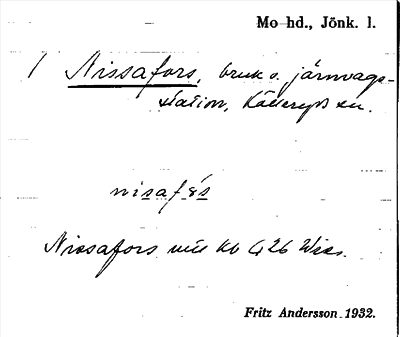 Mo hd., Jönk. l.
/ Nissafors, bruk o. järnvägs-
station, Kålleryds sn.
nisafǫ́s
Nissafors till Kb 426 Wiss.
Fritz Andersson 1932.